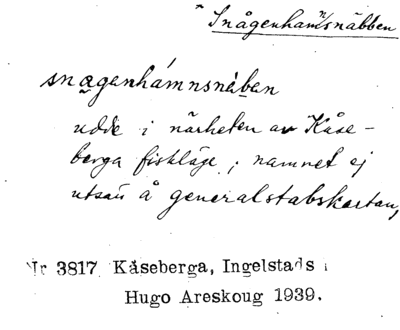 * Snågenhamnsnäbben
snagenhámnsnäben
udde i närheten av Kåse-
berga fiskläge; namnet ej
utsatt å generalstabskartan,
Nr 3817 Kåseberga, Ingelstads
Hugo Areskoug 1939.